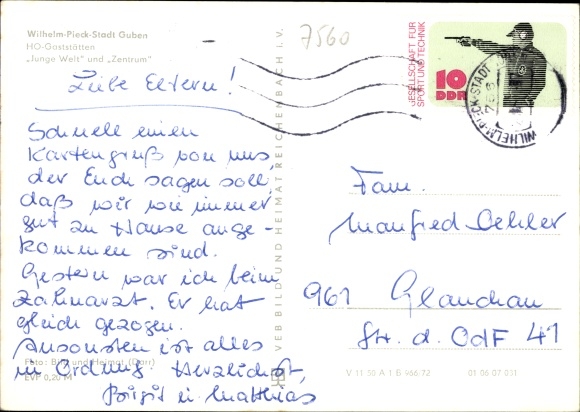 Wilhelm-Pieck-Stadt Guben
HO-Gaststätten
„Junge Welt" und „Zentrum"
7560
GESELLSCHAFT FÜR
SPORT UND TECHNIK
10
DDR
WILHELM-PIECK-STADT
Liebe Eltern!
Schnell einen
Kartengruß von uns
der Euch sagen soll,
daß wir wie immer
gut zu Hause ange-
kommen sind.
Gestern war ich beim
Zahnarzt. Er hat
gleich gezogen.
Ansonsten ist alles
in Ordnung. Herzlichst,
Birgit u. Matthias
VEB BILD UND HEIMAT REICHENBACH I. V.
Fam.
Manfred Oehler
961 Glauchau
Str. d. OdF 41
Foto: Bild und Heimat (Darr)
EVP 0,20 M
V 11 50 A 1 B 966/72 01 06 07 031